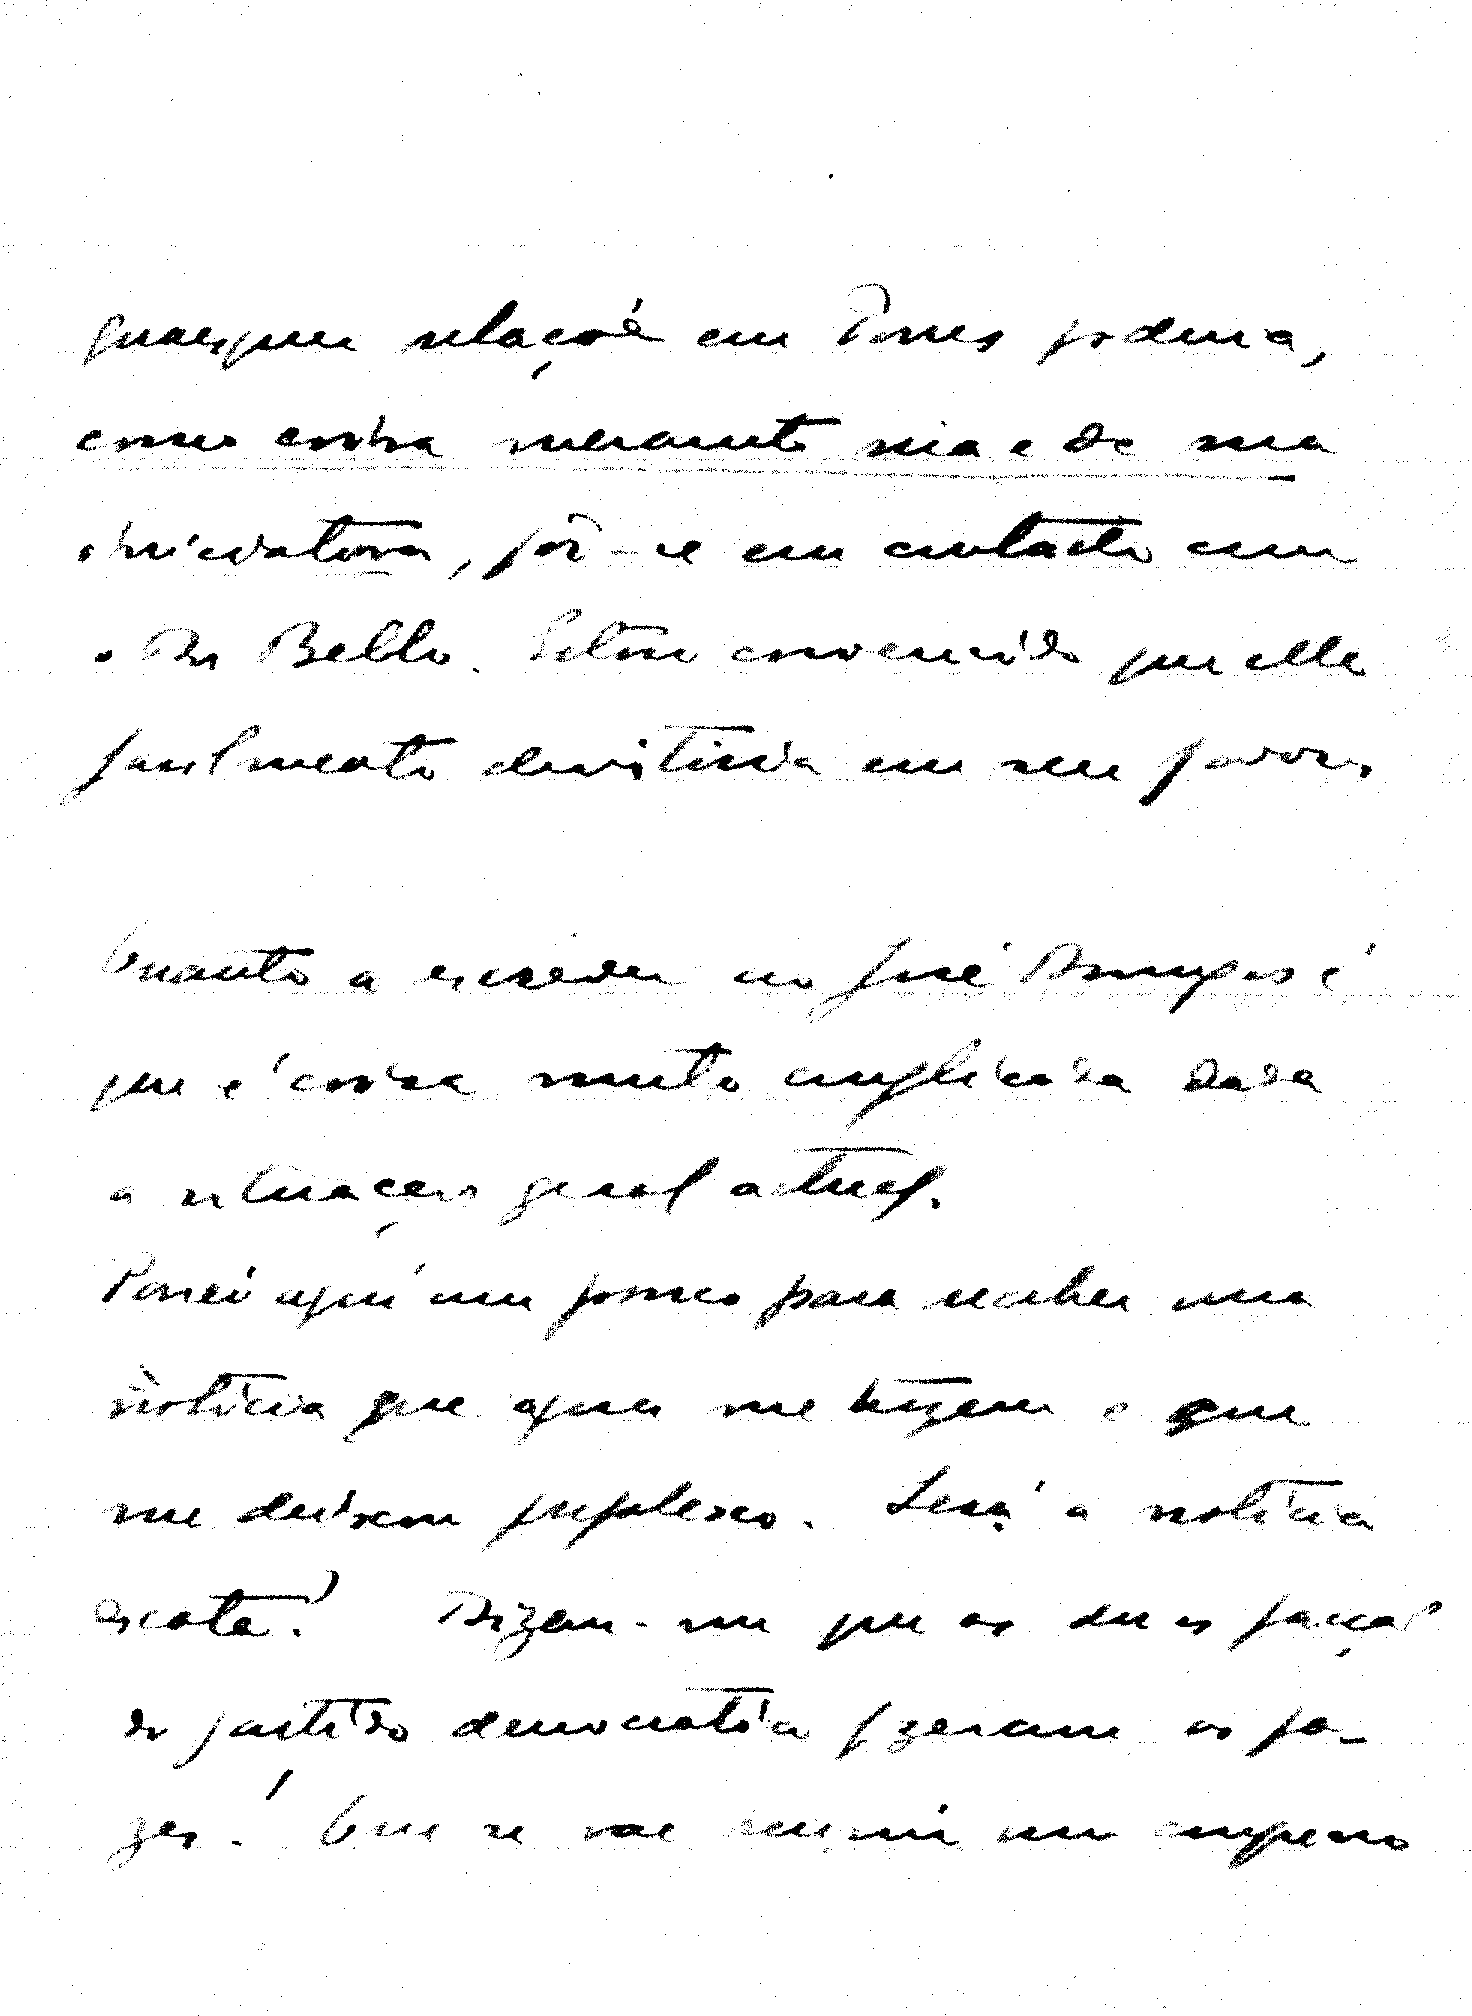 quaesquer relaçoẽ em Torres poderia,
como coisa meramente sua e de sua
, pôr-se em contacto com
o Dr Bello. Estou convencido que elle
facilmente desistiria em seu favor.
Quanto a escrever ao José Domingues é
que é coisa muito complicada dada
a situação geral actual.
Parei aqui um pouco para receber uma
noticia que agora me trazem e que
me deixou perplexo. Será a noticia
exacta? Dizem-me que as duas facçoẽ
do partido democratico fizeram as pa-
zes! Que se vae reunir um congresso